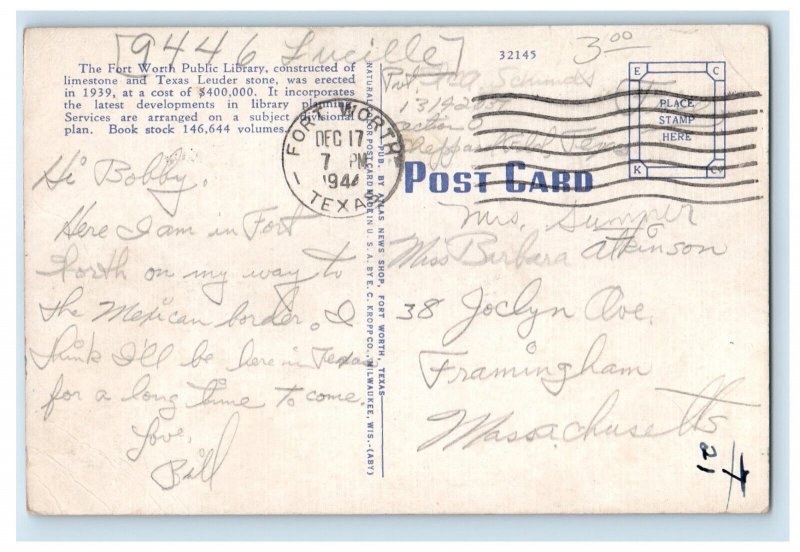 [9446 Lucille]
The Fort Worth Public Library, constructed of
limestone and Texas Leuder stone, was erected
in 1939, at a cost of $400,000. It incorporates
the latest developments in library planning.
Services are arranged on a subject divisional
plan. Book stock 146,644 volumes.
Hi Bobby,
Here I am in Fort
Worth on my way to
the Mexican border. I
think I'll be here in Texas
for a long time to come.
Love,
Bill
FORT WORTH
DEC 17
7 PM
194
TEXAS
PUB. BY ATLAS NEWS SHOP, FORT WORTH, TEXAS
NATURAL COLOR POST CARD MADE IN U. S. A. BY E. C. KROPP CO., MILWAUKEE, WIS.-(ABY)
32145
3.00
Pvt.
Section
Sheppard Field, Texas
E C
PLACE
STAMP
HERE
K Co
POST CARD
Mrs. Sumner
Miss Barbara Atkinson
38 Joclyn Ave.
Framingham
Massachusetts
21